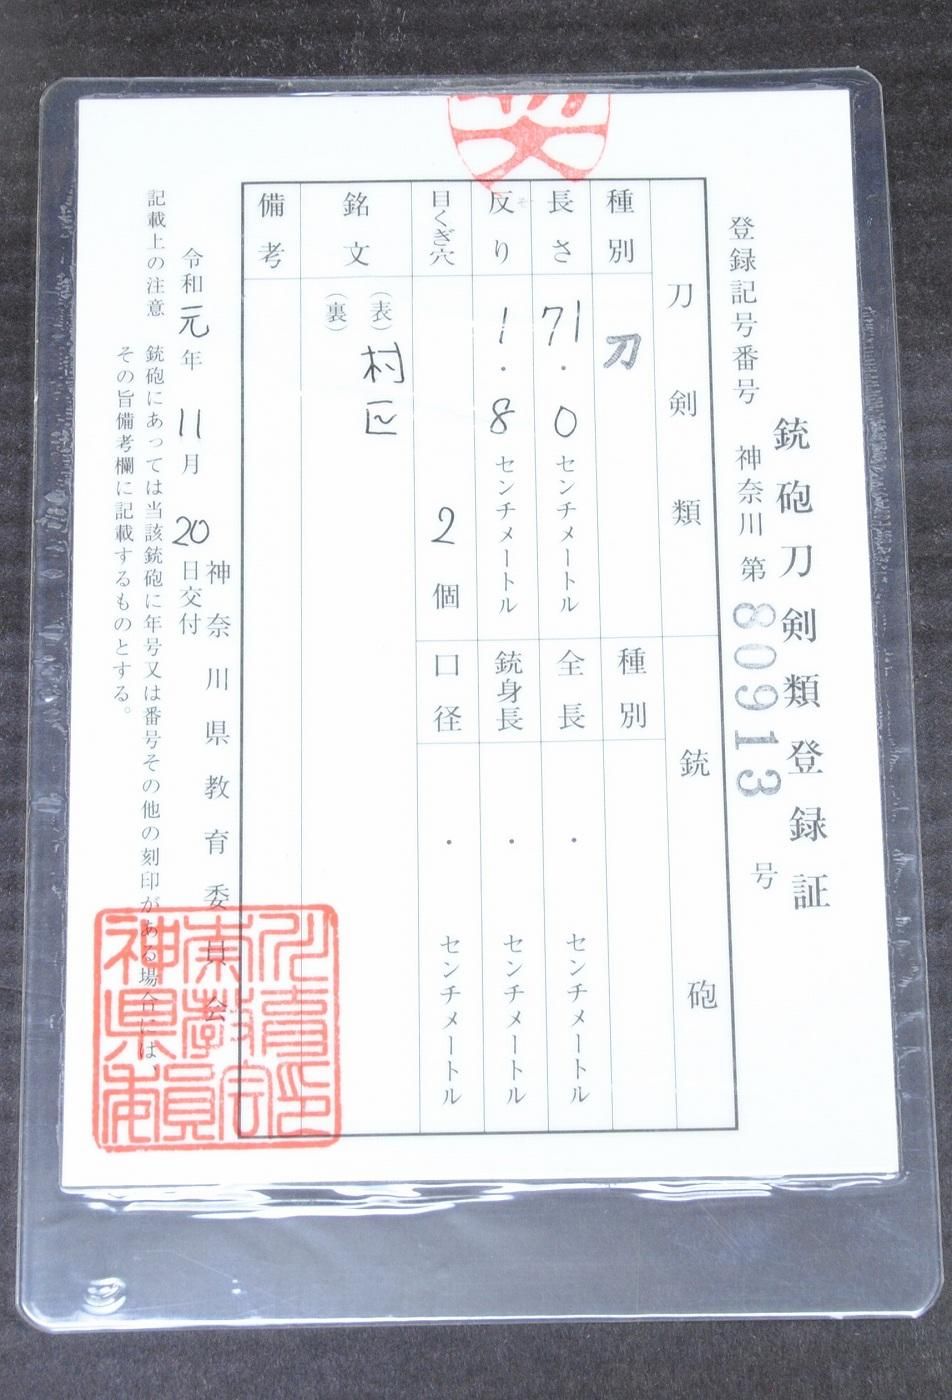 銃砲刀剣類登録証
登録記号番号 神奈川 第80913号
刀剣類
種別 刀
長さ 71.0センチメートル
反り 1.8センチメートル
目くぎ穴 2個
銘文 (表) 村正
(裏)
備考
銃砲
種別
全長 ・ センチメートル
銃身長 ・ センチメートル
口径 ・ センチメートル
神奈川県教育委員会
令和元年11月20日交付
記載上の注意 銃砲にあっては当該銃砲に年号又は番号その他の刻印がある場合には、
その旨備考欄に記載するものとする。
神奈川県教育委員会印